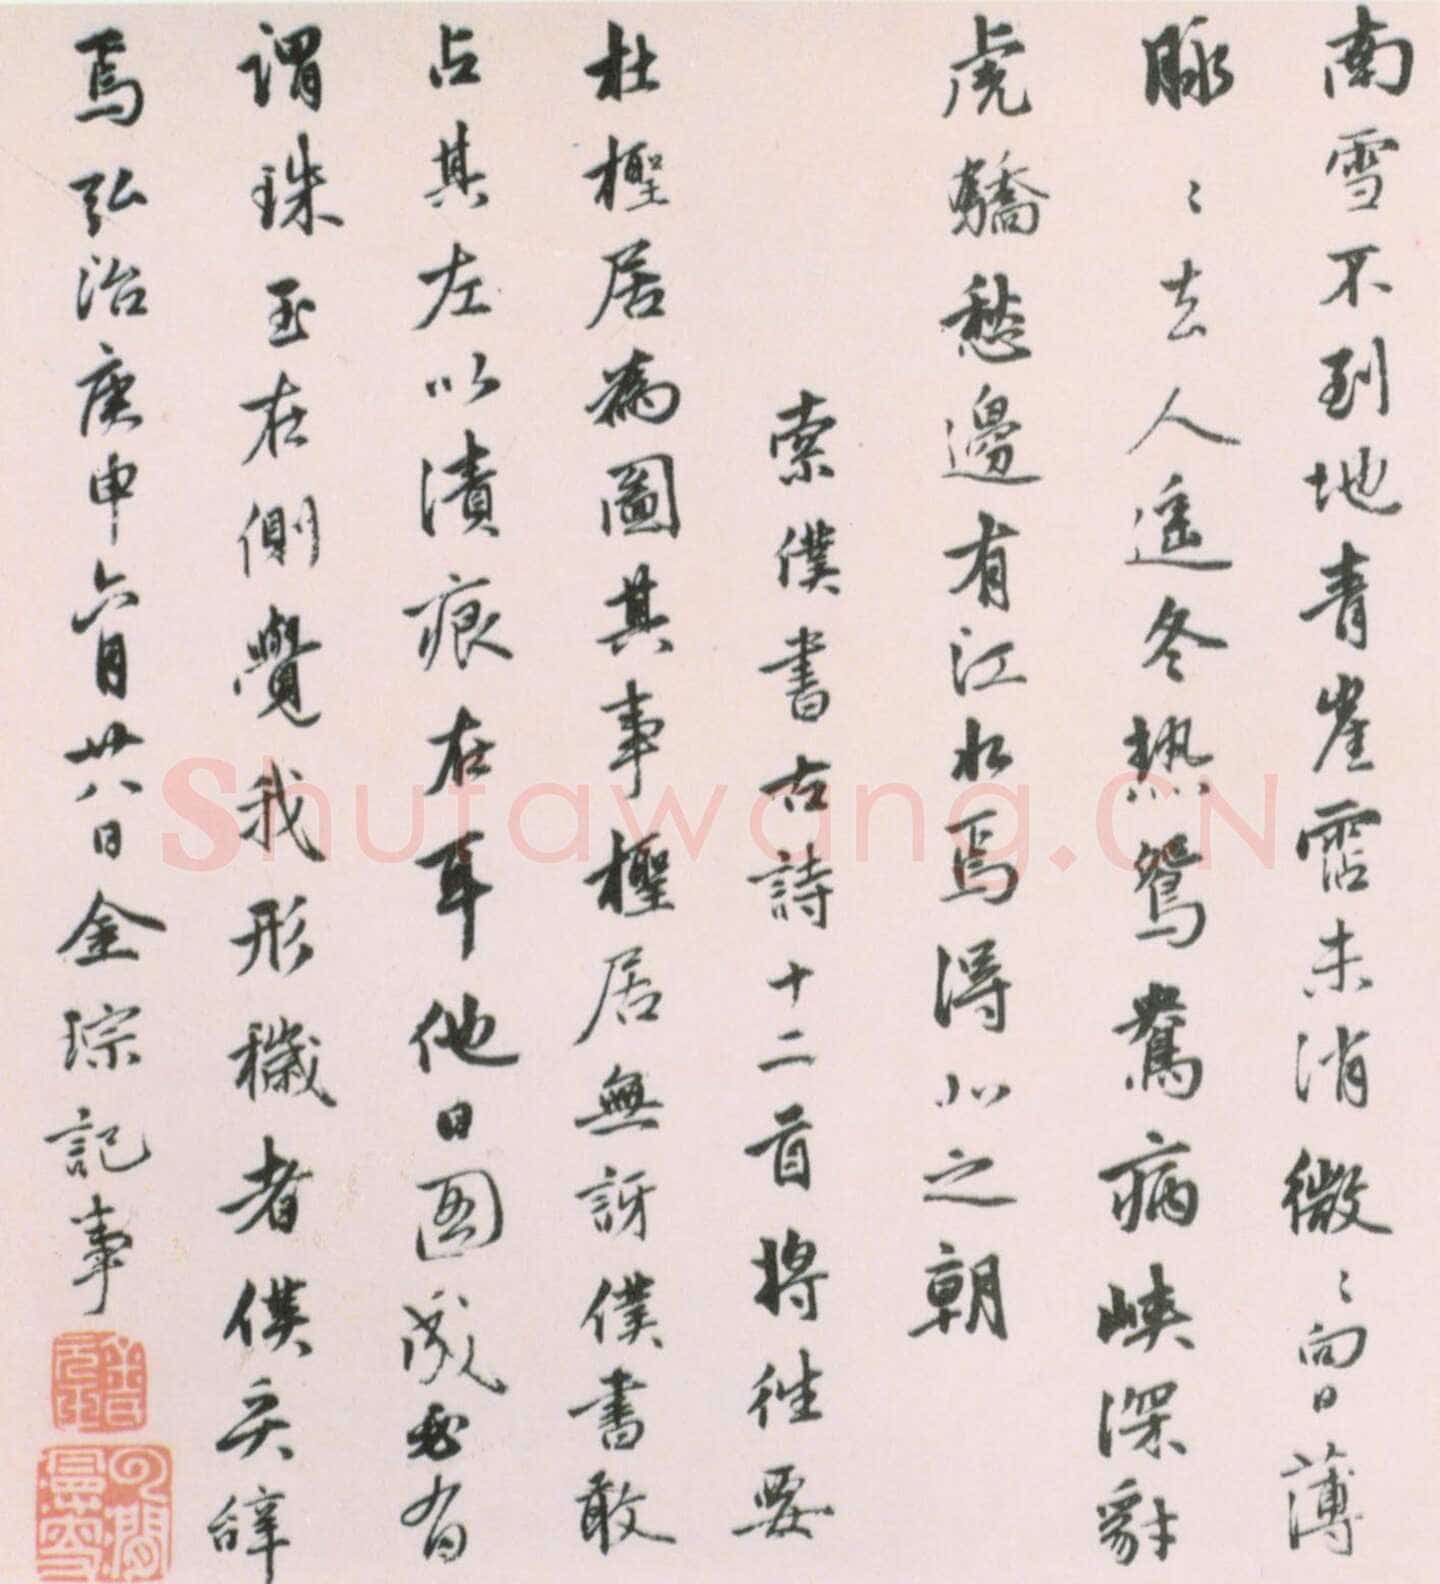 南雪不到地青崖霑未消微〻向日薄
脉〻去人遥冬热鴛鴦病峽深豺
虎驕愁邊有江水焉得北之朝
索僕書古詩十二首將往要
杜檉居為圖其事檉居無訝僕書敢
占其左以漬痕在耳他日圖成必有
謂珠玉在側覺我形穢者僕奚辭
焉弘治庚申六月廿八日金琮記事
Shufawang.CN